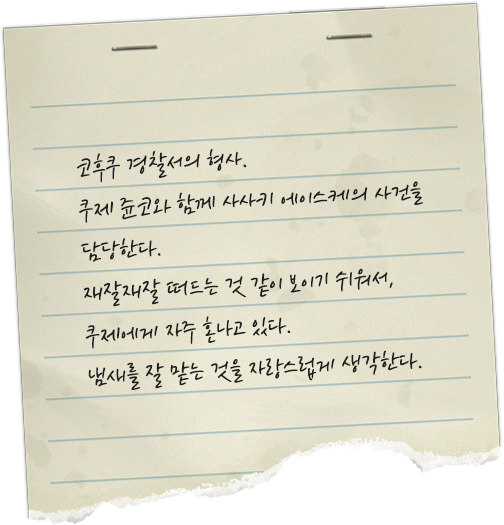 코후쿠 경찰서의 형사.
쿠제 쥰코와 함께 사사키 에이스케의 사건을
담당한다.
재잘재잘 떠드는 것 같이 보이기 쉬워서,
쿠제에게 자주 혼나고 있다.
냄새를 잘 맡는 것을 자랑스럽게 생각한다.